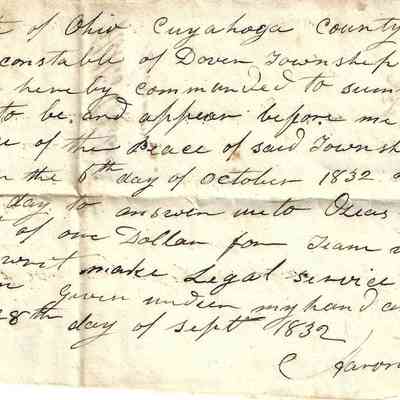 of Ohio Cuyahoga County
constable of Dover Township
hereby commanded to sum
to be and appear before me
of the Peace of said Townsh
the 6th day of October 1832
day to answer unto Ozias
of one Dollar for Team
writ make Legal service
Given under my hand a
28th day of Sept 1832
Aaron